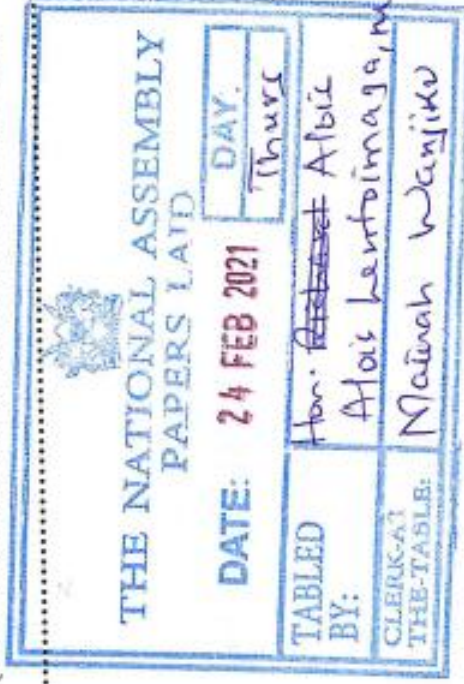 THE NATIONAL ASSEMBLY
PAPERS LAID
DATE: 24 FEB 2021
DAY.
Thurs
TABLED
BY:
Hon. Albie
Alois Lentoimaga, m
CLERK-AT
THE-TABLE:
Mainah Wanjiku